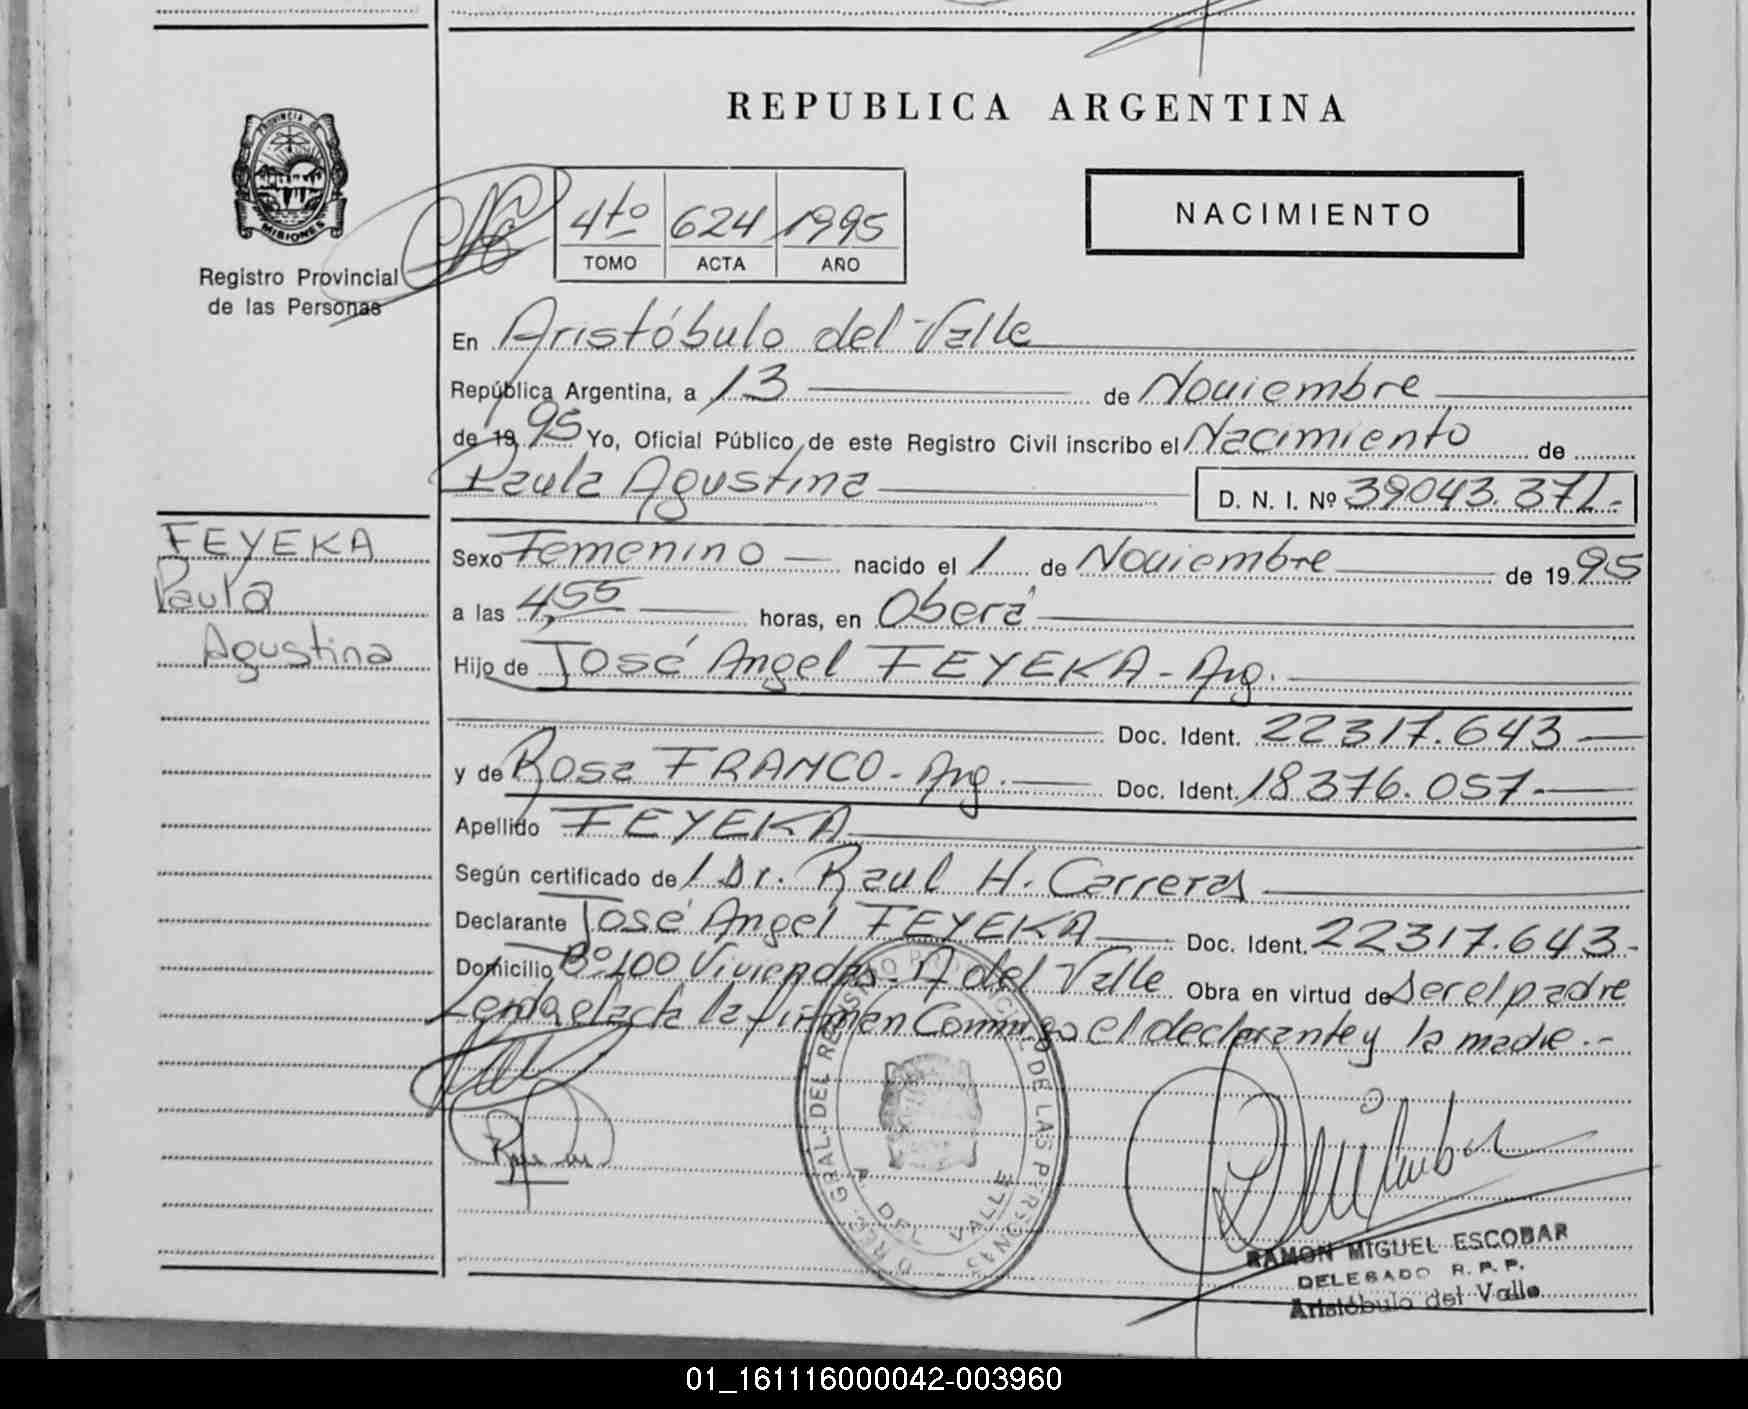 REPUBLICA ARGENTINA
PROVINCIA DE
MISIONES
Registro Provincial
de las Personas
4to 624 1995
TOMO ACTA AÑO
NACIMIENTO
En Aristóbulo del Valle
República Argentina, a 13 de Noviembre
de 19 95 Yo, Oficial Público de este Registro Civil inscribo el Nacimiento de
Paula Agustina D. N. I. Nº 39043.371.-
FEYEKA
Paula
Agustina
Sexo Femenino nacido el 1 de Noviembre de 19 95
a las 4,55 horas, en Oberá
Hijo de José Angel FEYEKA - Arg.
Doc. Ident. 22317.643
y de Rosa FRANCO - Arg. Doc. Ident. 18376.057.-
Apellido FEYEKA
Según certificado de / Dr. Raul H. Carreras
Declarante José Angel FEYEKA Doc. Ident. 22317.643.-
Domicilio Bº 100 Viviendas - A del Valle Obra en virtud de ser el padre
Leída el acta la firman Conmigo el declarante y la madre.-
REG. GRAL. DEL REGISTRO PROVINCIAL DE LAS PERSONAS
A. DEL VALLE
RAMON MIGUEL ESCOBAR
DELEGADO R. P. P.
Aristóbulo del Valle
01_161116000042-003960